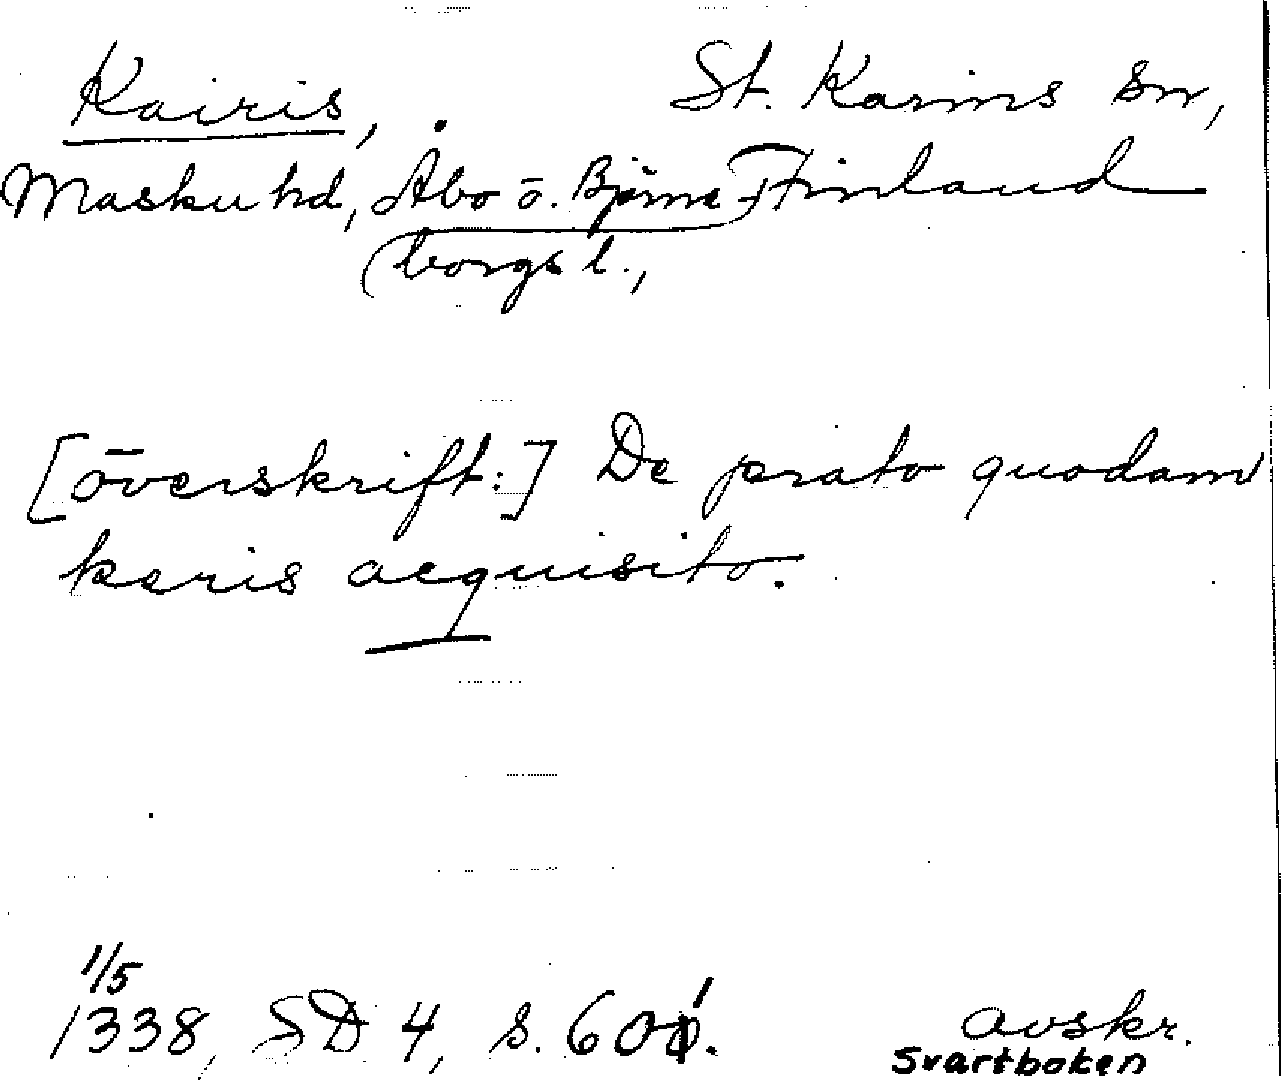 Kairis, St. Karins sn,
Masku hd, Åbo o. Björne- Finland
borgs l.,
[överskrift:] De prato quodam
karis acquisito.
1/5
1338, SD 4, s. 601. avskr.
Svartboken